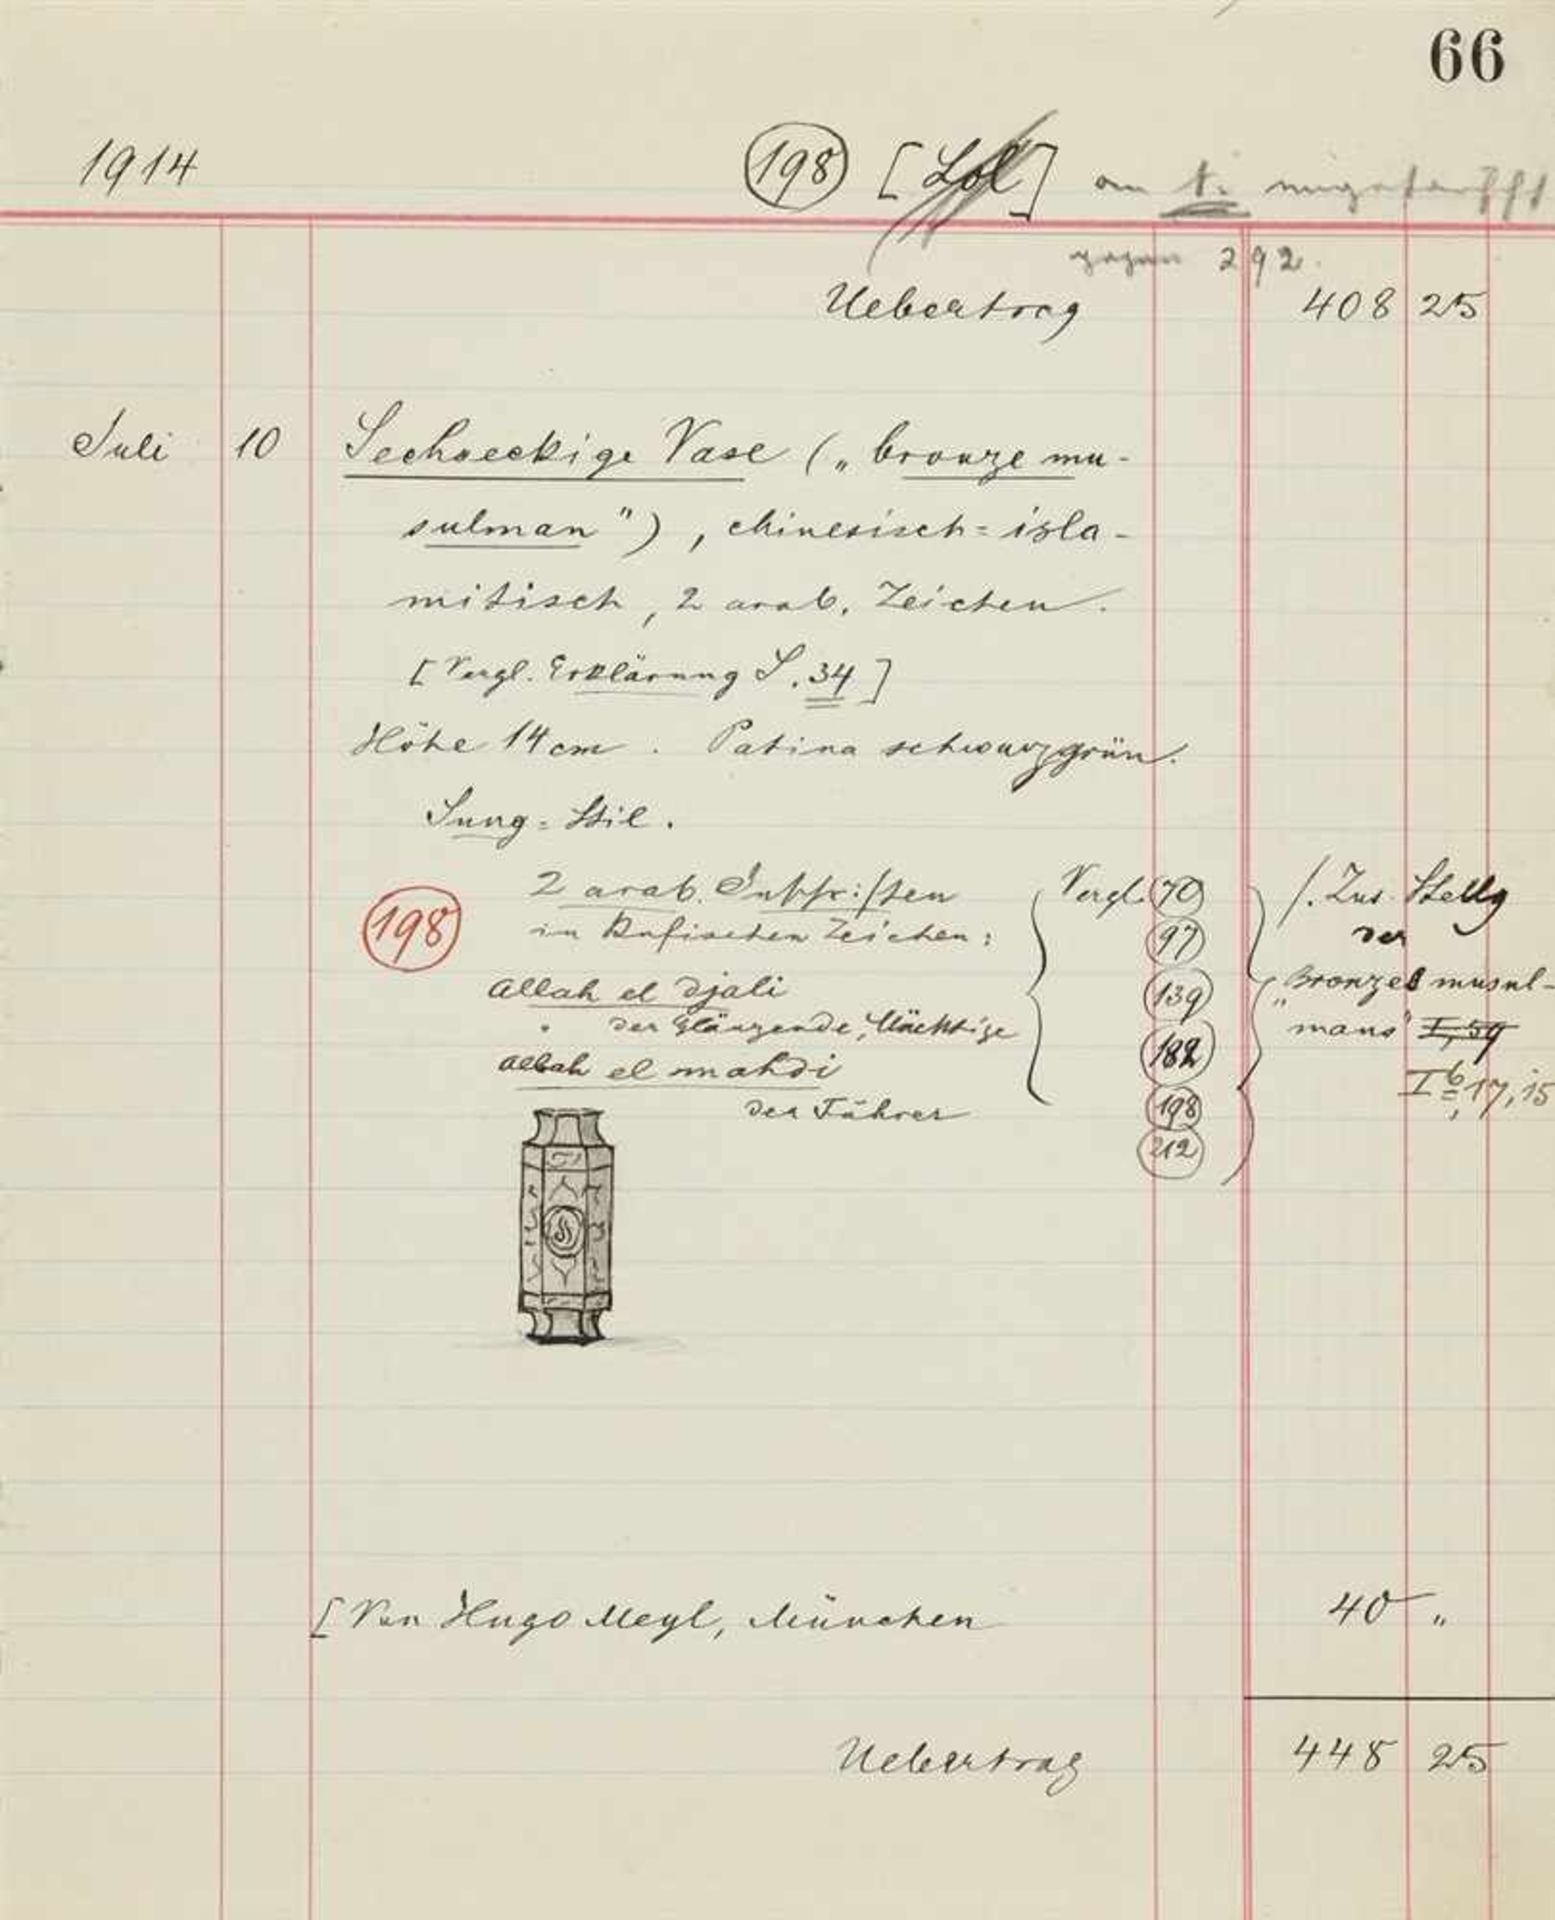 66
1914
198 [Lol] an
gegen 292.
Uebertrag 408 25
Juli 10 Sechseckige Vase („bronze mu-
sulman"), chinesisch=isla-
mitisch, 2 arab. Zeichen.
[Vergl. Erklärung S. 34]
Höhe 14 cm. Patina schwarzgrün.
Sung=Stil.
198
2 arab. Inschriften
in Kufischen Zeichen:
Allah el Djali
" der Glänzende, Mächtige
Allah el mahdi
der Führer
Vergl. 70
97
139
182
198
212
/. Zus. Stellg
der
„Bronzes musul-
mans" I, 59
I b, 17, 15
[Von Hugo Meyl, München 40 "
Uebertrag 448 25